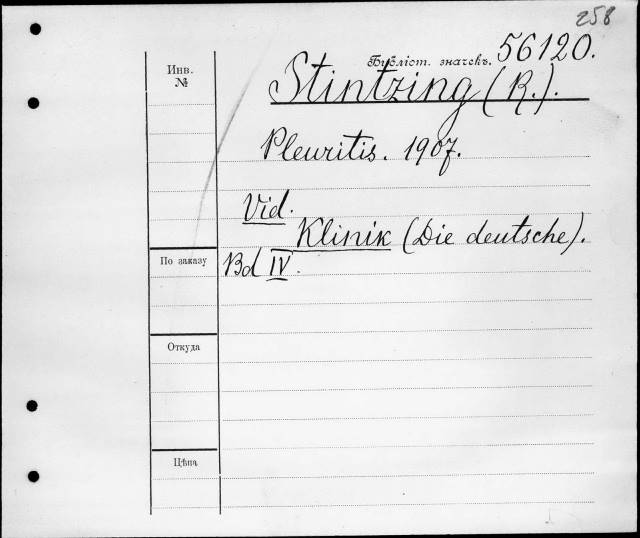 258
Библіот. значекъ. 56120.
Инв.
№
Stintzing (R.).
Pleuritis. 1907.
Vid.
Klinik (Die deutsche).
По заказу
Bd IV.
Откуда
Цѣна